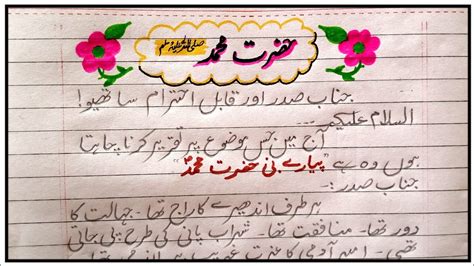 حضرت محمد صلی اللہ علیہ وسلم
جناب صدر اور قابل احترام ساتھیو!
السلام علیکم۔۔۔۔
آج میں جس موضوع پر تقریر کرنا چاہتا
ہوں وہ ہے "پیارے نبی حضرت محمدؐ"
جناب صدر :-
ہر طرف اندھیرے کا راج تھا۔ جہالت کا
دور تھا۔ منافقت تھا۔ شراب پانی کی طرح پی جاتی
تھی۔ امیر آدمی کا